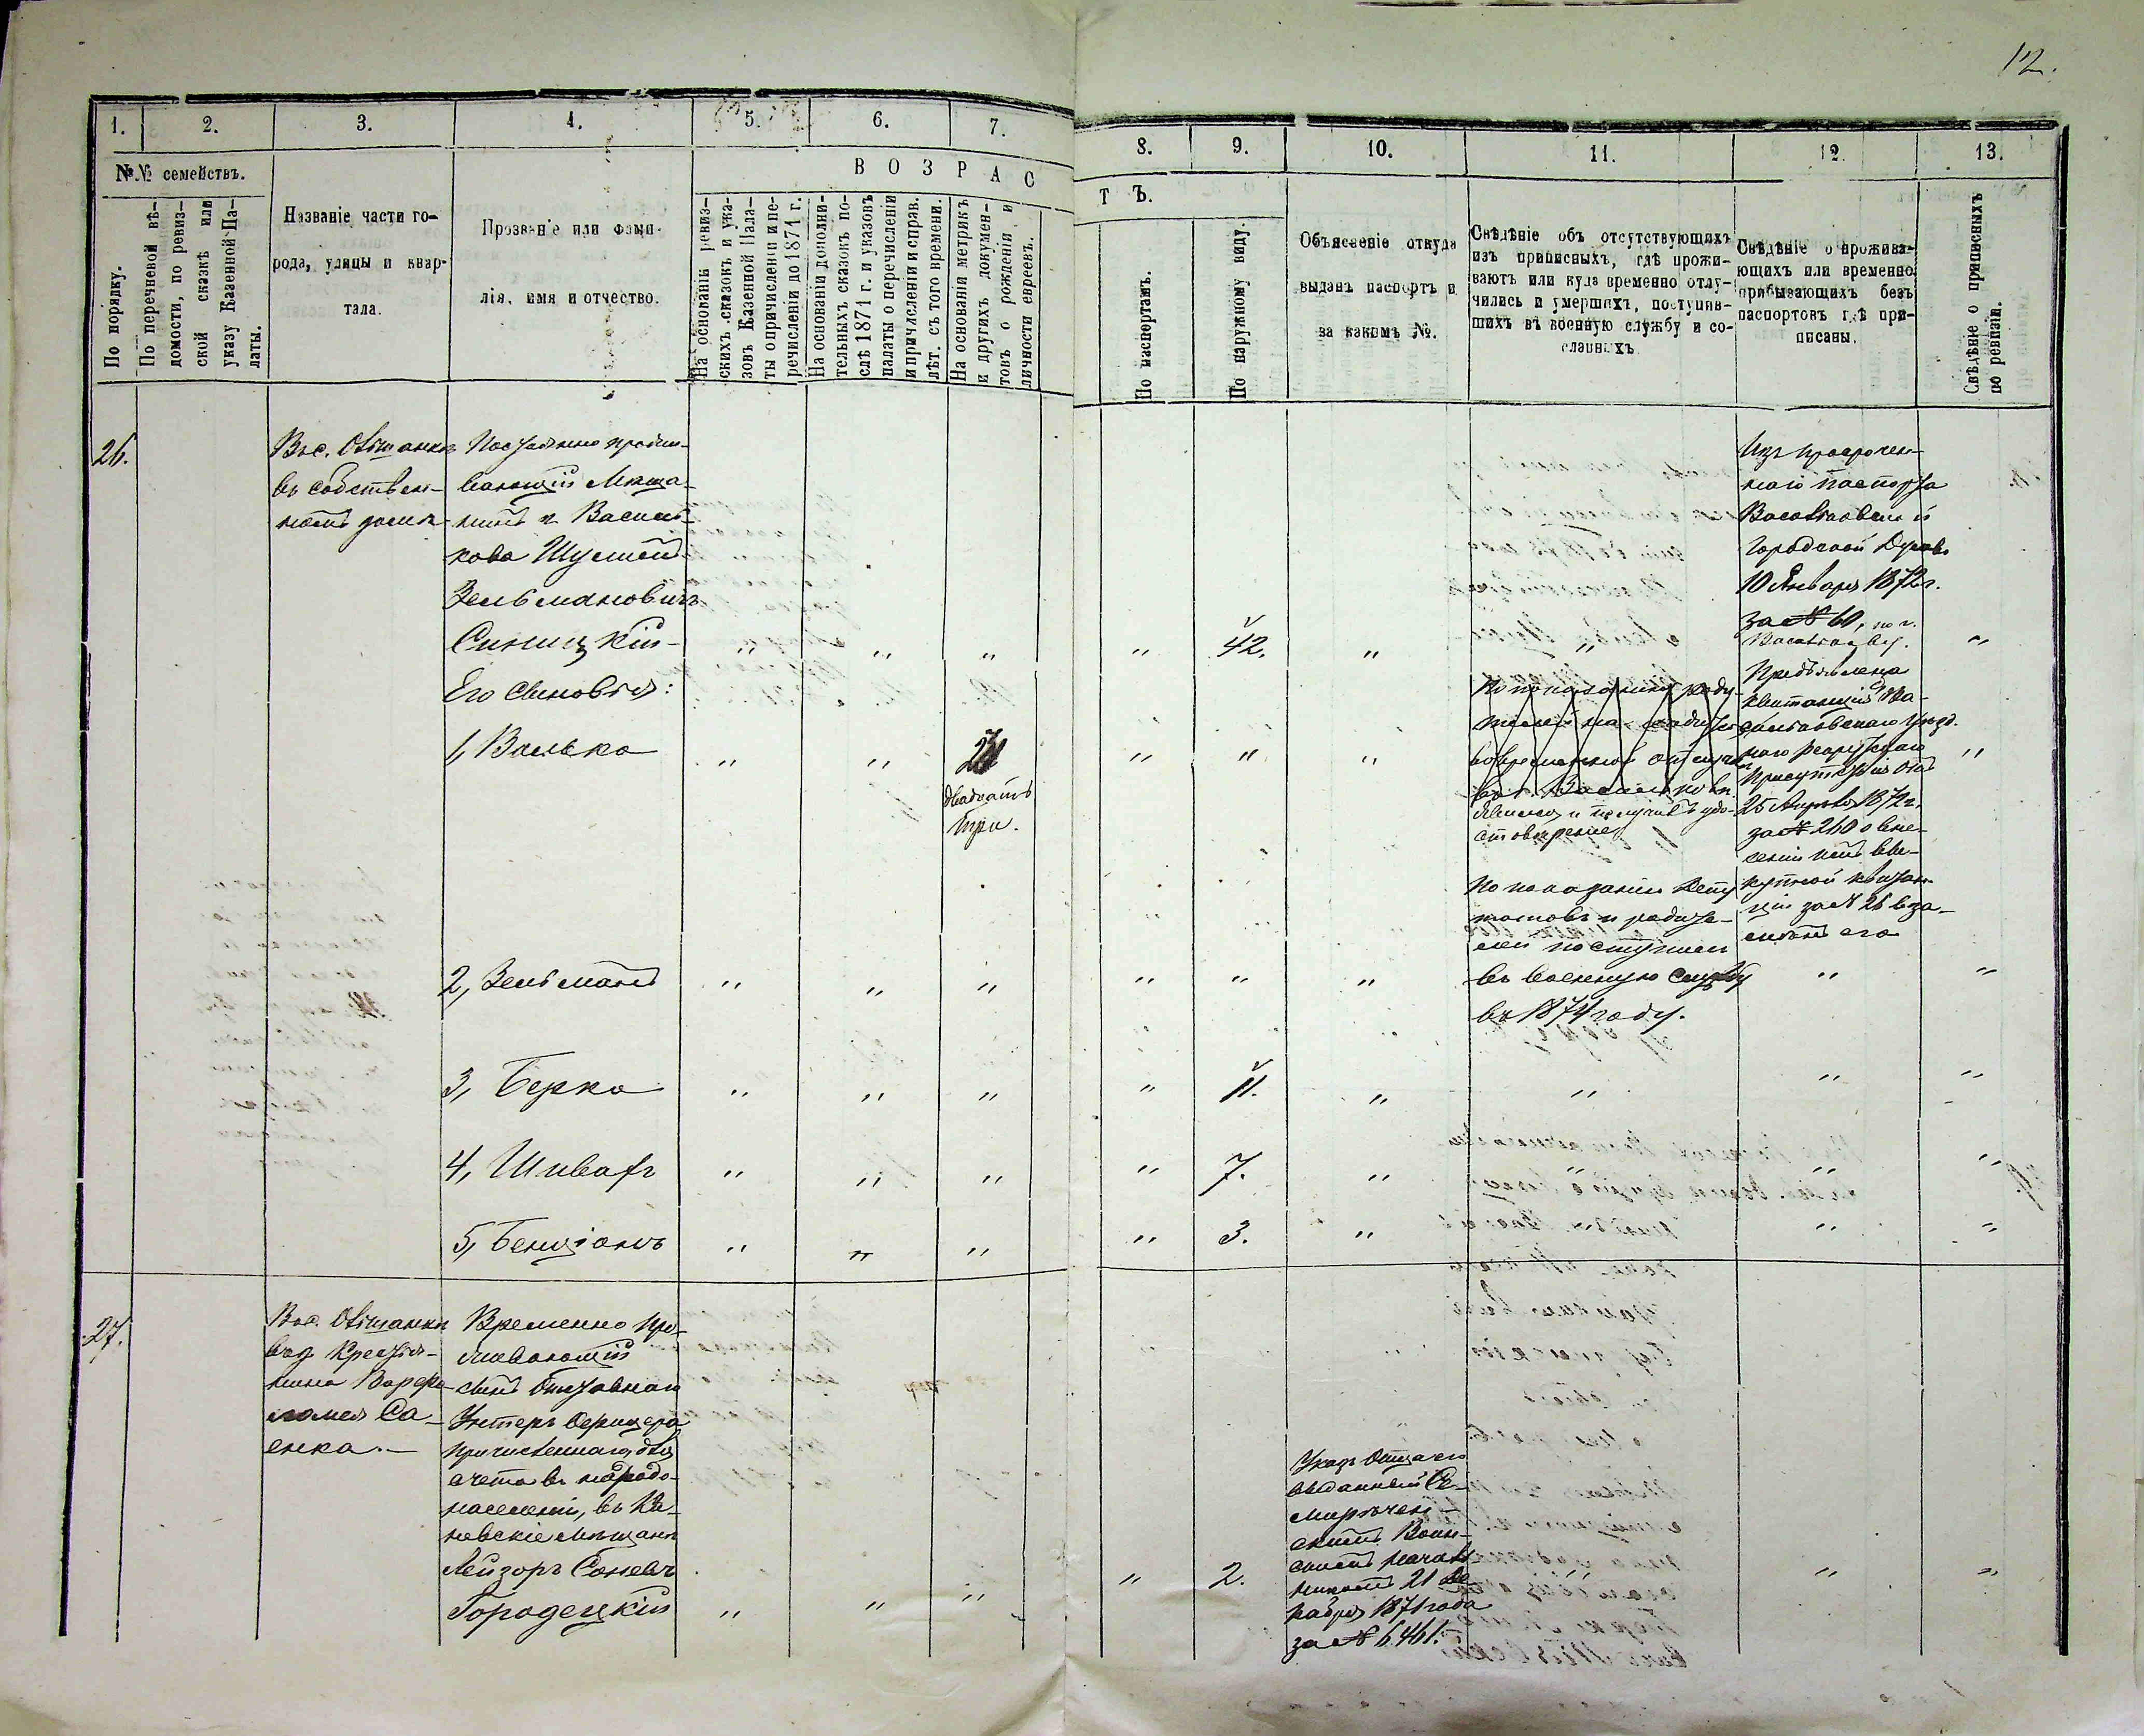 12.
1. 2. 3. 4. 5. 6. 7. 8. 9. 10. 11. 12. 13.
№№ семействъ.
По порядку.
По перечневой вѣ-
домости, по ревиз-
ской сказкѣ или
указу Казенной Па-
латы.
Названіе части го-
рода, улицы и квар-
тала.
Прозваніе или фами-
лія, имя и отчество.
ВОЗРАС
ТЪ.
На основаніи ревиз-
скихъ сказокъ и ука-
зовъ Казенной Пала-
ты о причисленіи и пе-
речисленіи до 1871 г.
На основаніи дополни-
тельныхъ сказокъ по-
слѣ 1871 г. и указовъ
палаты о перечисленіи
и причисленіи и справ.
лѣт. съ того времени.
На основаніи метрикъ
и другихъ докумен-
товъ о рожденіи и
личности евреевъ.
По паспортамъ.
По наружному виду.
Объясненіе откуда
выданъ паспортъ и
за какимъ №.
Свѣдѣніе объ отсутствующихъ
изъ приписныхъ, гдѣ прожи-
ваютъ или куда временно отлу-
чились и умершихъ, поступив-
шихъ въ военную службу и со-
сланныхъ
Свѣдѣніе о прожива-
ющихъ или временно
прибывающихъ безъ
паспортовъ гдѣ при-
писаны.
Свѣдѣніе о приписныхъ
по ревизіи.
26.
въ собствен-
номъ домѣ
Постоянно прожи-
вающій Мѣща-
нинъ г. Василь-
кова
Зельмановичъ
Синицкій
Его сыновья:
42.
Изъ просрочен-
наго паспорта
Васильковской
Городской Думы
10 Января 1872 г.
за № 60, по г.
Василькову.
1, Валько
23
двадцать
три.
По показанію роди-
телей
въ г. Васильков
явился и получилъ удо-
стовѣреніе
Предъявлена
квитанція Ва-
сильковскаго Уѣзд-
наго Рекрутскаго
Присутствія отъ
25 Апрѣля 1872 г.
за № 260 о вне-
сеніи имъ вы-
купной квитан-
ціи за № 26 в за-
мѣнъ его
2, Зельманъ
По показанію Депу-
татовъ и родите-
лей поступилъ
въ военную службу
въ 1874 году.
3, Берко
11.
4,
7.
5, Бенціонъ
3.
27.
въ д. Крестья-
нина Варфо-
ломея Са-
енка.
Временно про-
живающій
сынъ Отставнаго
Унтеръ Офицера
причисленнаго для
счета въ народо-
населеніи, въ Ка-
невскіе мѣщане
Лейзоръ
Городецкій
2.
Указъ Отца его
выданный Се-
мирѣчен-
скимъ Воин-
скимъ Началь-
никомъ 21 Де-
кабря 1871 года
за № 6461.